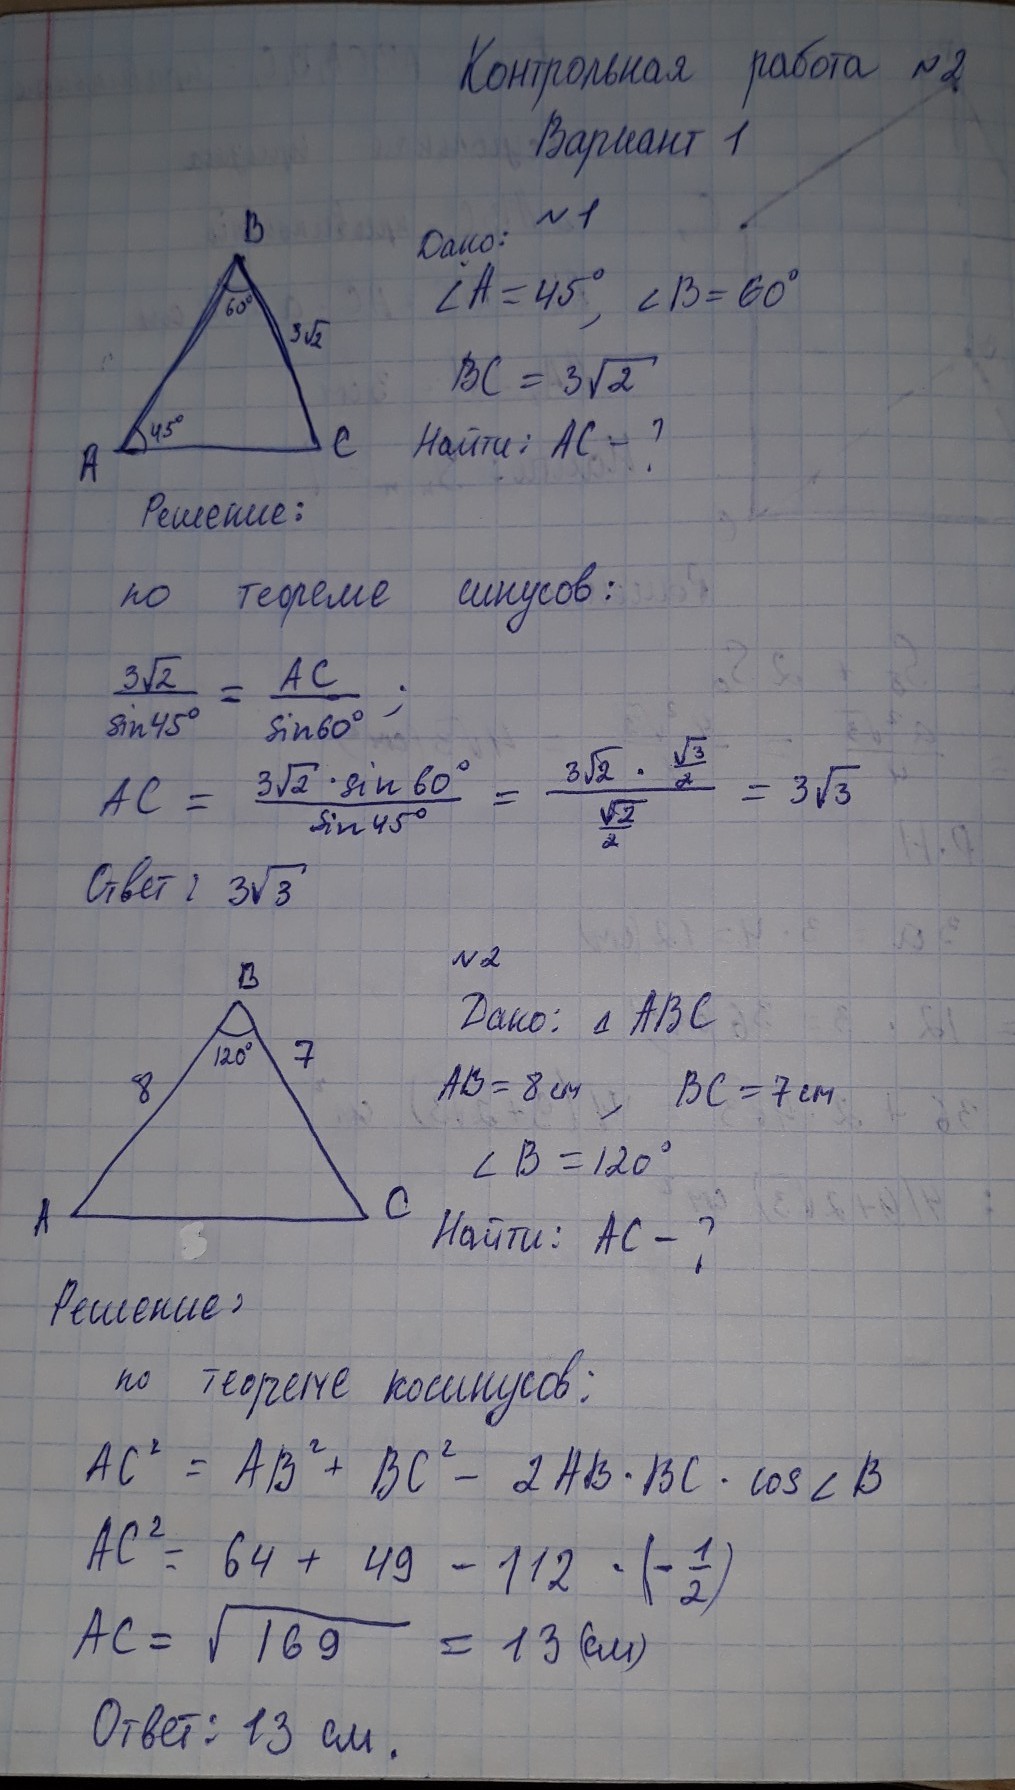 Контрольная работа №2
Вариант 1
№1
B
60°
3√2
45°
A
C
Дано:
∠A = 45°, ∠B = 60°
BC = 3√2
Найти: AC - ?
Решение:
по теореме синусов:
3√2/sin45° = AC/sin60° ;
AC = 3√2 · sin 60°/sin 45° = 3√2 · √3/2 / √2/2 = 3√3
Ответ: 3√3
№2
B
120°
8
7
A
C
Дано: △ ABC
AB = 8 см, BC = 7 см
∠B = 120°
Найти: AC - ?
Решение:
по теореме косинусов:
AC² = AB² + BC² - 2AB · BC · cos∠B
AC² = 64 + 49 - 112 · (-1/2)
AC = √169 = 13 (см)
Ответ: 13 см.